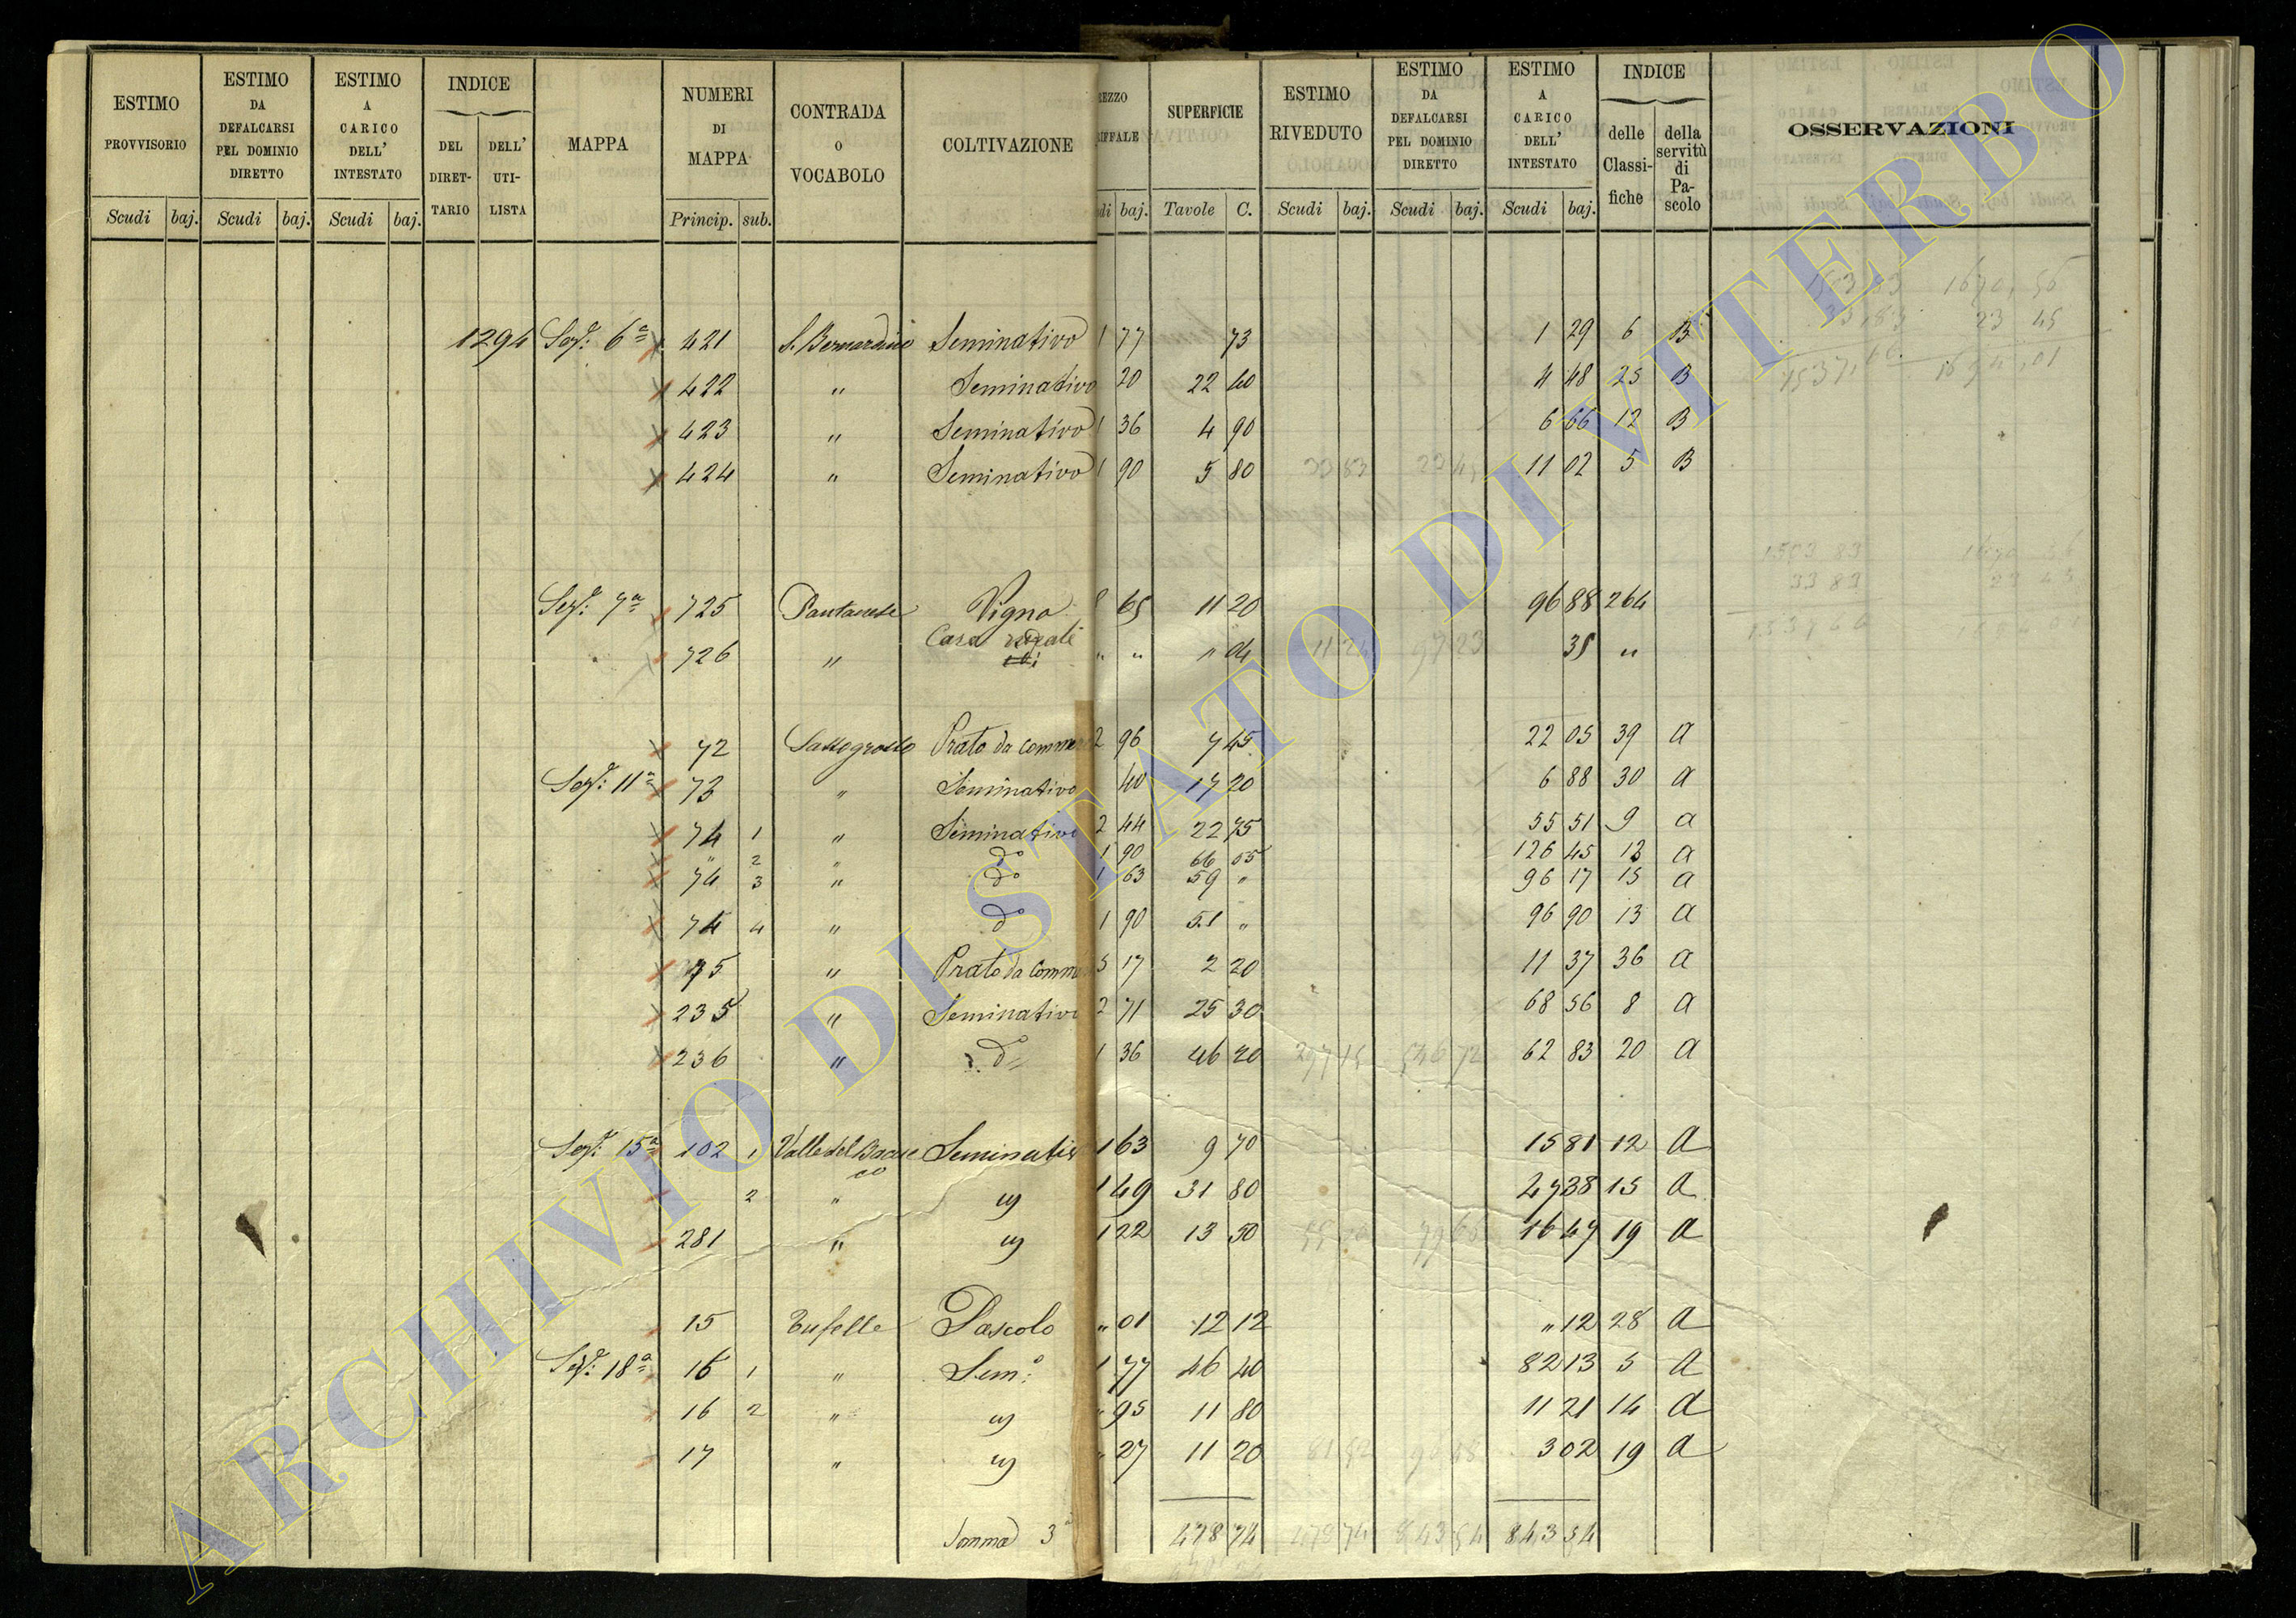 ESTIMO PROVVISORIO Scudi baj. ESTIMO DA DEFALCARSI PEL DOMINIO DIRETTO Scudi baj. ESTIMO A CARICO DELL' INTESTATO Scudi baj. INDICE DEL DIRET-TARIO DELL' UTI-LISTA MAPPA NUMERI DI MAPPA Princip. sub. CONTRADA o VOCABOLO COLTIVAZIONE
REZZO RIFFALE di baj. SUPERFICIE Tavole C. ESTIMO RIVEDUTO Scudi baj. ESTIMO DA DEFALCARSI PEL DOMINIO DIRETTO Scudi baj. ESTIMO A CARICO DELL' INTESTATO Scudi baj. INDICE delle Classi-fiche della servitù di Pa-scolo OSSERVAZIONI
1294 Sez.e 6a 421 S. Bernardino Seminativo 1 77 73 1 29 6 B
422 " Seminativo 20 22 40 4 48 25 B
423 " Seminativo 1 36 4 90 6 66 12 B
424 " Seminativo 1 90 5 80 11 02 5 B
Sez.e 7a 725 Pantanese Vigna 65 11 20 96 88 264
726 " Casa rurale " " " 04 35 "
72 Sassogrosso Prato da commer 2 96 7 45 22 05 39 a
Sez.e 11a 73 " Seminativo 40 17 20 6 88 30 a
74 1 " Seminativo 2 44 22 75 55 51 9 a
" 2 " do 1 90 66 55 126 45 13 a
74 3 " do 1 63 59 " 96 17 15 a
74 4 " do 1 90 51 " 96 90 13 a
75 " Prato da comm 5 17 2 20 11 37 36 a
235 " Seminativo 2 71 25 30 68 56 8 a
236 " do 1 36 46 20 62 83 20 a
Sez.e 15a 102 1 Valle del Bacucco Seminativ 1 63 9 70 15 81 12 a
2 " " 1 49 31 80 47 38 15 a
281 " " 1 22 13 50 16 47 19 a
15 Tufelle Pascolo " 01 12 12 " 12 28 a
Sez.e 18a 16 1 " Sem.o 1 77 46 40 82 13 5 a
16 2 " " " 95 11 80 11 21 14 a
17 " " " 27 11 20 3 02 19 a
Somma 3 478 74 478 74 843 54 843 54
ARCHIVIO DI STATO DI VITERBO